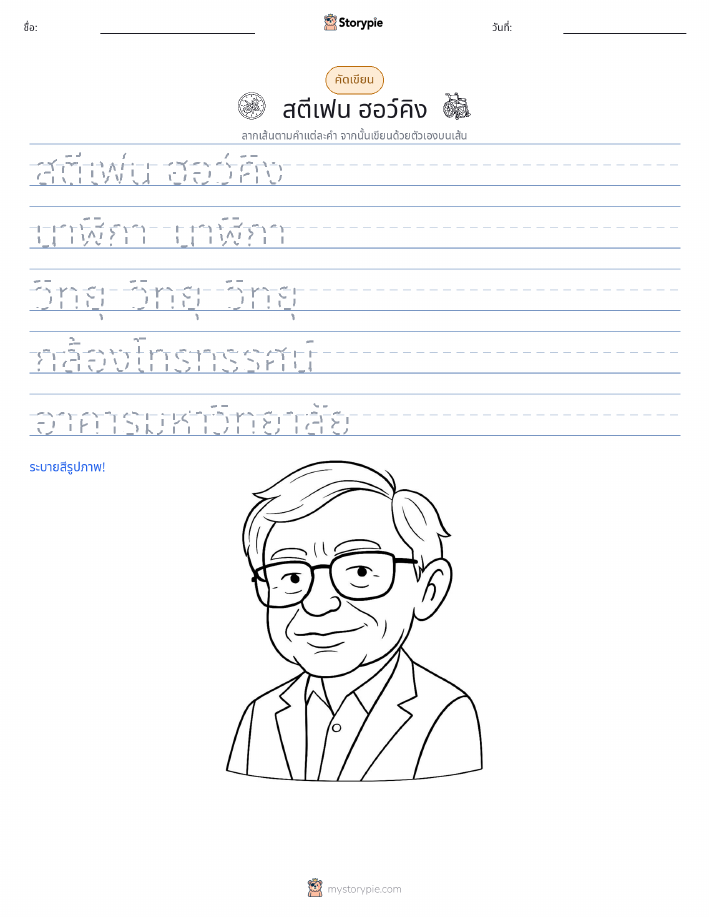 ชื่อ:
Storypie
วันที่:
คัดเขียน
สตีเฟน ฮอว์คิง
ลากเส้นตามคำแต่ละคำ จากนั้นเขียนด้วยตัวเองบนเส้น
สตีเฟน ฮอว์คิง
นาฬิกา นาฬิกา
วิทยุ วิทยุ วิทยุ
กล้องโทรทรรศน์
อาคารมหาวิทยาลัย
ระบายสีรูปภาพ!
mystorypie.com